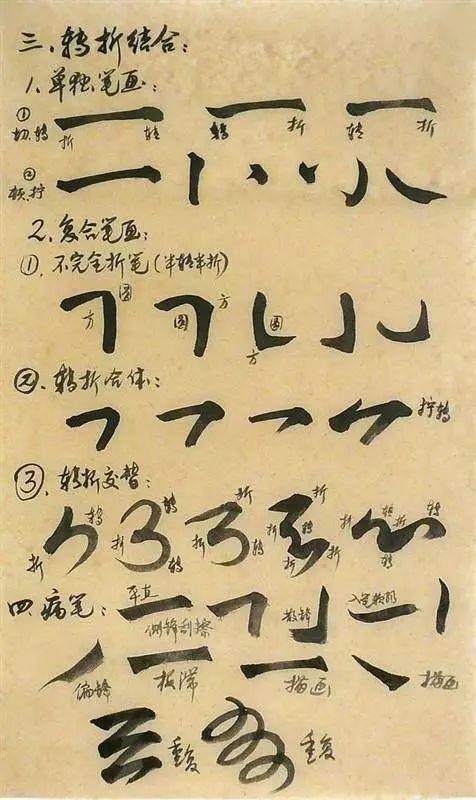 三、转折结合：
1.单独笔画：
① 切、转 折 转 转 折 转 折
② 顿、拧
2.复合笔画：
①.不完全折笔（半转半折）
方 圆 圆 方 圆 方
②.转折合体：
拧转
③.转折交替：
折 转 折 转 转 折 折 转 折 折 转 折 折 转 折 转 转
四.病笔：
平直 侧锋刮擦 散锋
偏锋 板滞 描画 描画
重复 重复